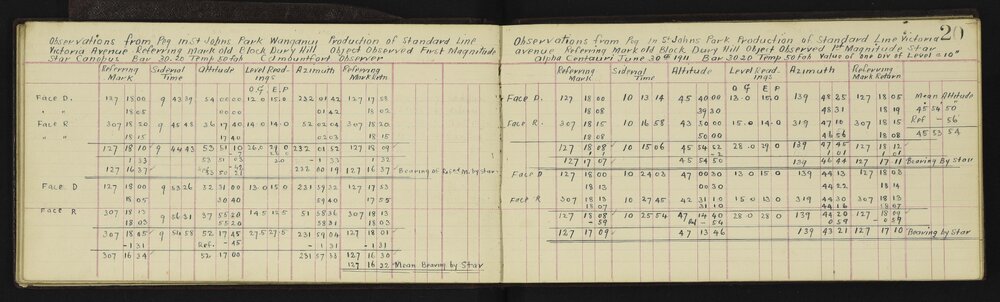 Observations from Peg in St Johns Park Wanganui Production of Standard Line
Victoria Avenue Referring Mark old Block Dury Hill Object Observed First Magnitude
Star Canopus Bar 30.20 Temp 50 fab Camountfort Observer
Referring Mark Sidereal Time Altitude Level Readings Azimuth Referring Mark Retn.
O.G. E.P
Face D. 127 18 00 9 43 39 54 00 00 12.0 15.0 232 01 42 127 17 58
" " 18 05 00 00 01 42 18 02
Face R 307 18 20 9 45 48 36 40 14.0 14.0 52 02 04 307 18 20
" 18 15 17 40 02 03 18 15
127 18 10 9 44 43 53 51 10 26.0 29.0 232 01 52 127 18 09
1 33 53 51 03 -1 33 1 32
127 16 37 53 50 21 232 00 19 127 16 37 Bearing of by star
Face D 127 18 00 9 53 26 52 31 00 13.0 15.0 231 59 32 127 17 53
18 05 30 40 59 40 17 55
Face R 307 18 13 9 56 31 37 55 20 14.5 12.5 51 58 36 307 18 13
18 03 55 20 58 31 18 03
307 18 05 9 54 58 52 17 45 27.5 27.5 231 59 04 127 18 01
-1 31 Ref. -45 -1 31 -1 31
307 16 34 52 17 00 231 57 33 127 16 30
127 16 32 Mean Bearing by Star
20
Observations from Peg in St Johns Park Production of Standard Line Victoria
avenue Referring Mark old Block Dury Hill Object Observed 1st Magnitude Star
alpha Centauri June 30th 1911 Bar 30.20 Temp 50 fab Value of one Div of Level = 10"
Referring Mark Sidereal Time Altitude Level Readings Azimuth Referring Mark Retn
O G E.P
Face D. 127 18 00 10 13 14 45 40 00 13.0 15.0 139 48 25 127 18 05 Mean Altitude
18 08 39 30 48 31 18 19 45 54 50
Face R. 307 18 15 10 16 58 43 50 00 15.0 14.0 319 47 10 307 18 15 Ref -56
18 08 50 00 46 56 18 08 45 53 54
127 18 08 10 15 06 45 54 52 28.0 29.0 139 47 45 127 18 12
127 17 07 45 54 50 139 46 44 127 17 11 Bearing By Star
Face D 127 18 00 10 24 03 47 00 30 13.0 15.0 139 44 13 127 18 08
18 13 00 30 44 22 18 14
Face R 307 18 13 10 27 45 42 31 10 15.0 13.0 319 44 30 307 18 13
18 07 31 10 44 16 18 07
127 18 08 10 25 54 47 14 40 28.0 28.0 139 44 20 127 18 09
-59 Ref -54 0 59 -0 59
127 17 09 47 13 46 139 43 21 127 17 10 Bearing by Star